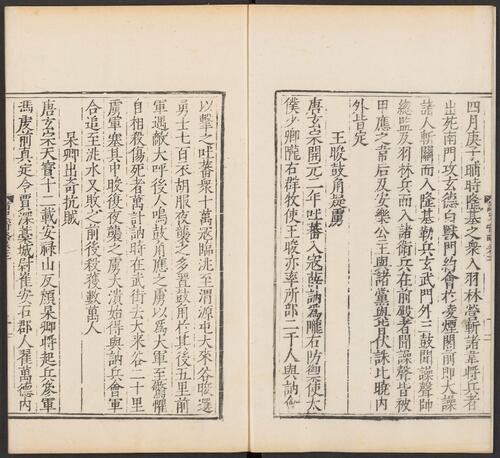 四月庚子晡時隆基之衆入羽林營斬諸韋將兵者
出死南門攻玄德白獸門約會於凌煙閣前即大譟
諸人斬關而入隆基勒兵玄武門外三鼓聞譟聲帥
總監及羽林兵而入諸衛兵在前殿者聞譟聲皆被
甲應之韋后及安樂公主與諸黨與皆伏誅比曉內
外皆定
王晙鼓角走虜
唐玄宗開元二年吐蕃入寇薛訥爲隴右防禦使太
僕少卿隴右群牧使王晙亦率所部二千人與訥
以擊之吐蕃衆十萬寇臨洮至渭源屯大來谷晙選
勇士七百衣胡服夜襲之多置鼓角於其後五里前
軍遇敵大呼後人鳴鼓角應之虜以爲大軍至驚懼
自相殺傷死者萬計訥時在武街去大來谷二十里
虜軍塞其中晙復夜襲之虜大潰始得與訥兵會軍
合追至洮水又敗之前後殺獲數萬人
杲卿出奇抗賊
唐玄宗天寶十二載安祿山反顏杲卿將起兵參軍
馮虔前真定令賈深藁城尉崔安石郡人翟萬德內